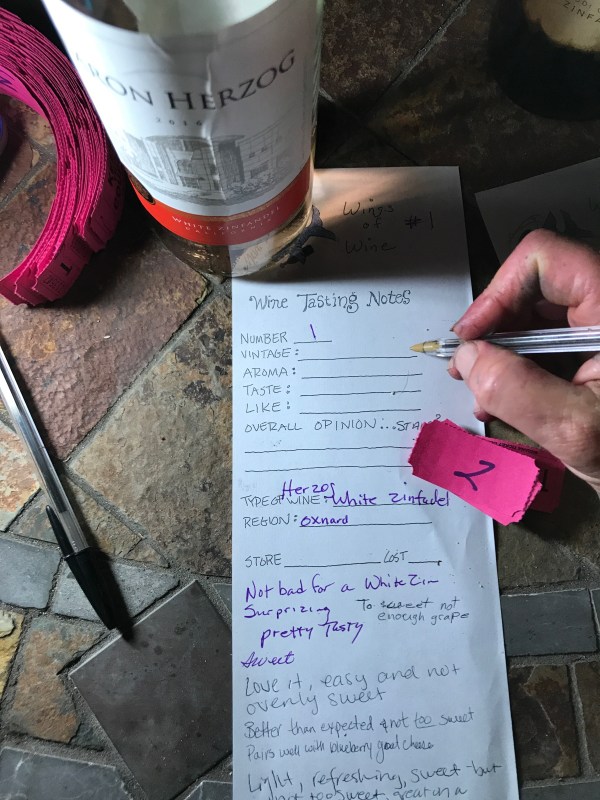 RON HERZOG
2016
WHITE ZINFANDEL
ZINFA
1
Wings
of #1
Wine
Wine Tasting Notes
NUMBER 1
VINTAGE:
AROMA:
TASTE:
LIKE:
OVERALL OPINION:
2
Herzog
TYPE OF WINE: White Zinfadel
REGION: oxnard
STORE COST
Not bad for a White Zin
Surprizing
To sweet not
enough grape
pretty Tasty
Sweet
Love it, easy and not
overly sweet
Better than expected & not too sweet
Pairs well with blueberry goat cheese
Light, refreshing, sweet but
not too sweet, great on a